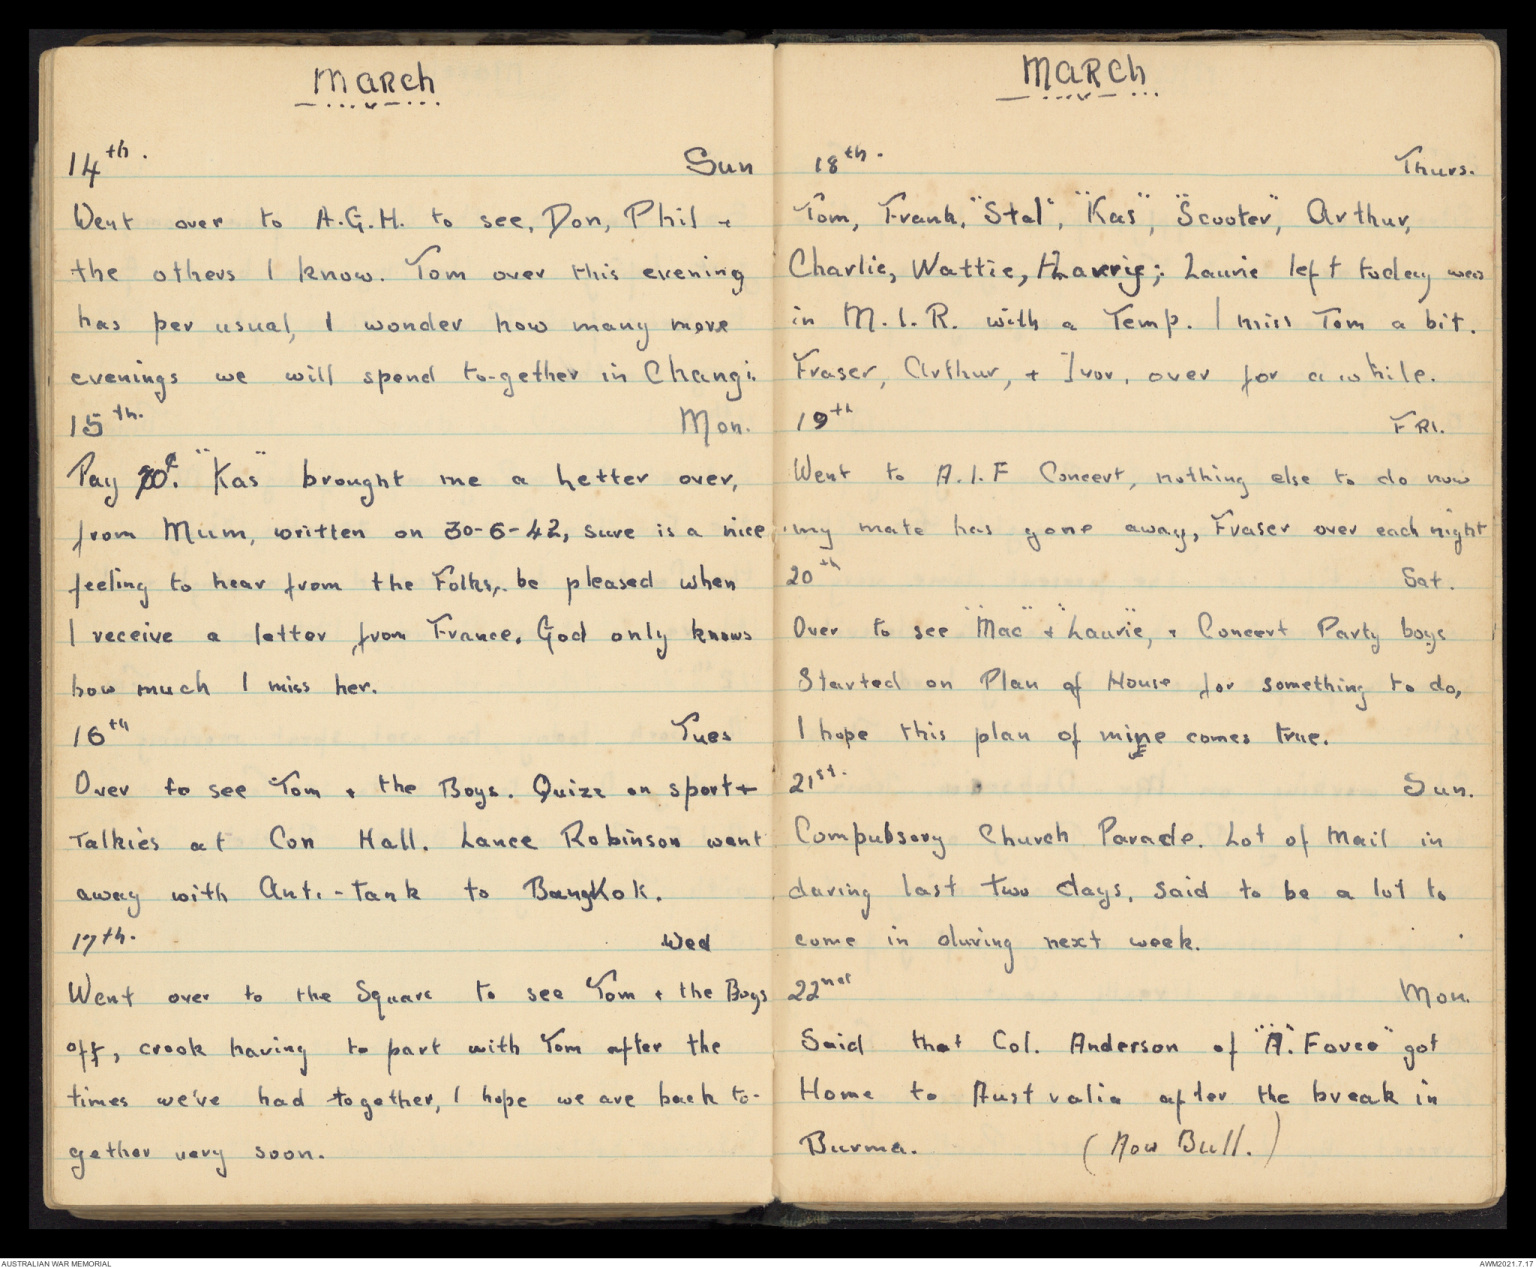 March
14th. Sun
Went over to A.G.H. to see, Don, Phil +
the others I know. Tom over this evening
has per usual, I wonder how many more
evenings we will spend to-gether in Changi.
15th. Mon.
Pay "Kas" brought me a Letter over,
from Mum, written on 30-6-42, sure is a nice
feeling to hear from the Folks, be pleased when
I receive a letter from France. God only knows
how much I miss her.
16th Tues
Over to see Tom + the Boys. Quizz on sport +
Talkies at Con Hall. Lance Robinson went
away with Anti-Tank to Bangkok.
17th. Wed
Went over to the Square to see Tom + the Boys
off, crook having to part with Tom after the
times we've had together, I hope we are back to-
gether very soon.
March
18th. Thurs.
Tom, Frank, "Stal", "Kas", "Scooter", Arthur,
Charlie, Wattie, Harrie; Laurie left today was
in M.I.R. with a Temp. I miss Tom a bit.
Fraser, Arthur, + Ivor, over for a while.
19th FRI.
Went to A.I.F Concert, nothing else to do now
my mate has gone away, Fraser over each night
20th Sat.
Over to see "Mac" + "Laurie", + Concert Party boys
Started on Plan of House for something to do,
I hope this plan of mine comes true.
21st. Sun.
Compulsory Church Parade. Lot of Mail in
during last two days, said to be a lot to
come in during next week.
22nd Mon.
Said that Col. Anderson of "A. Force" got
Home to Australia after the break in
Burma. (Now Bull.)
AUSTRALIAN WAR MEMORIAL
AWM2021.7.17